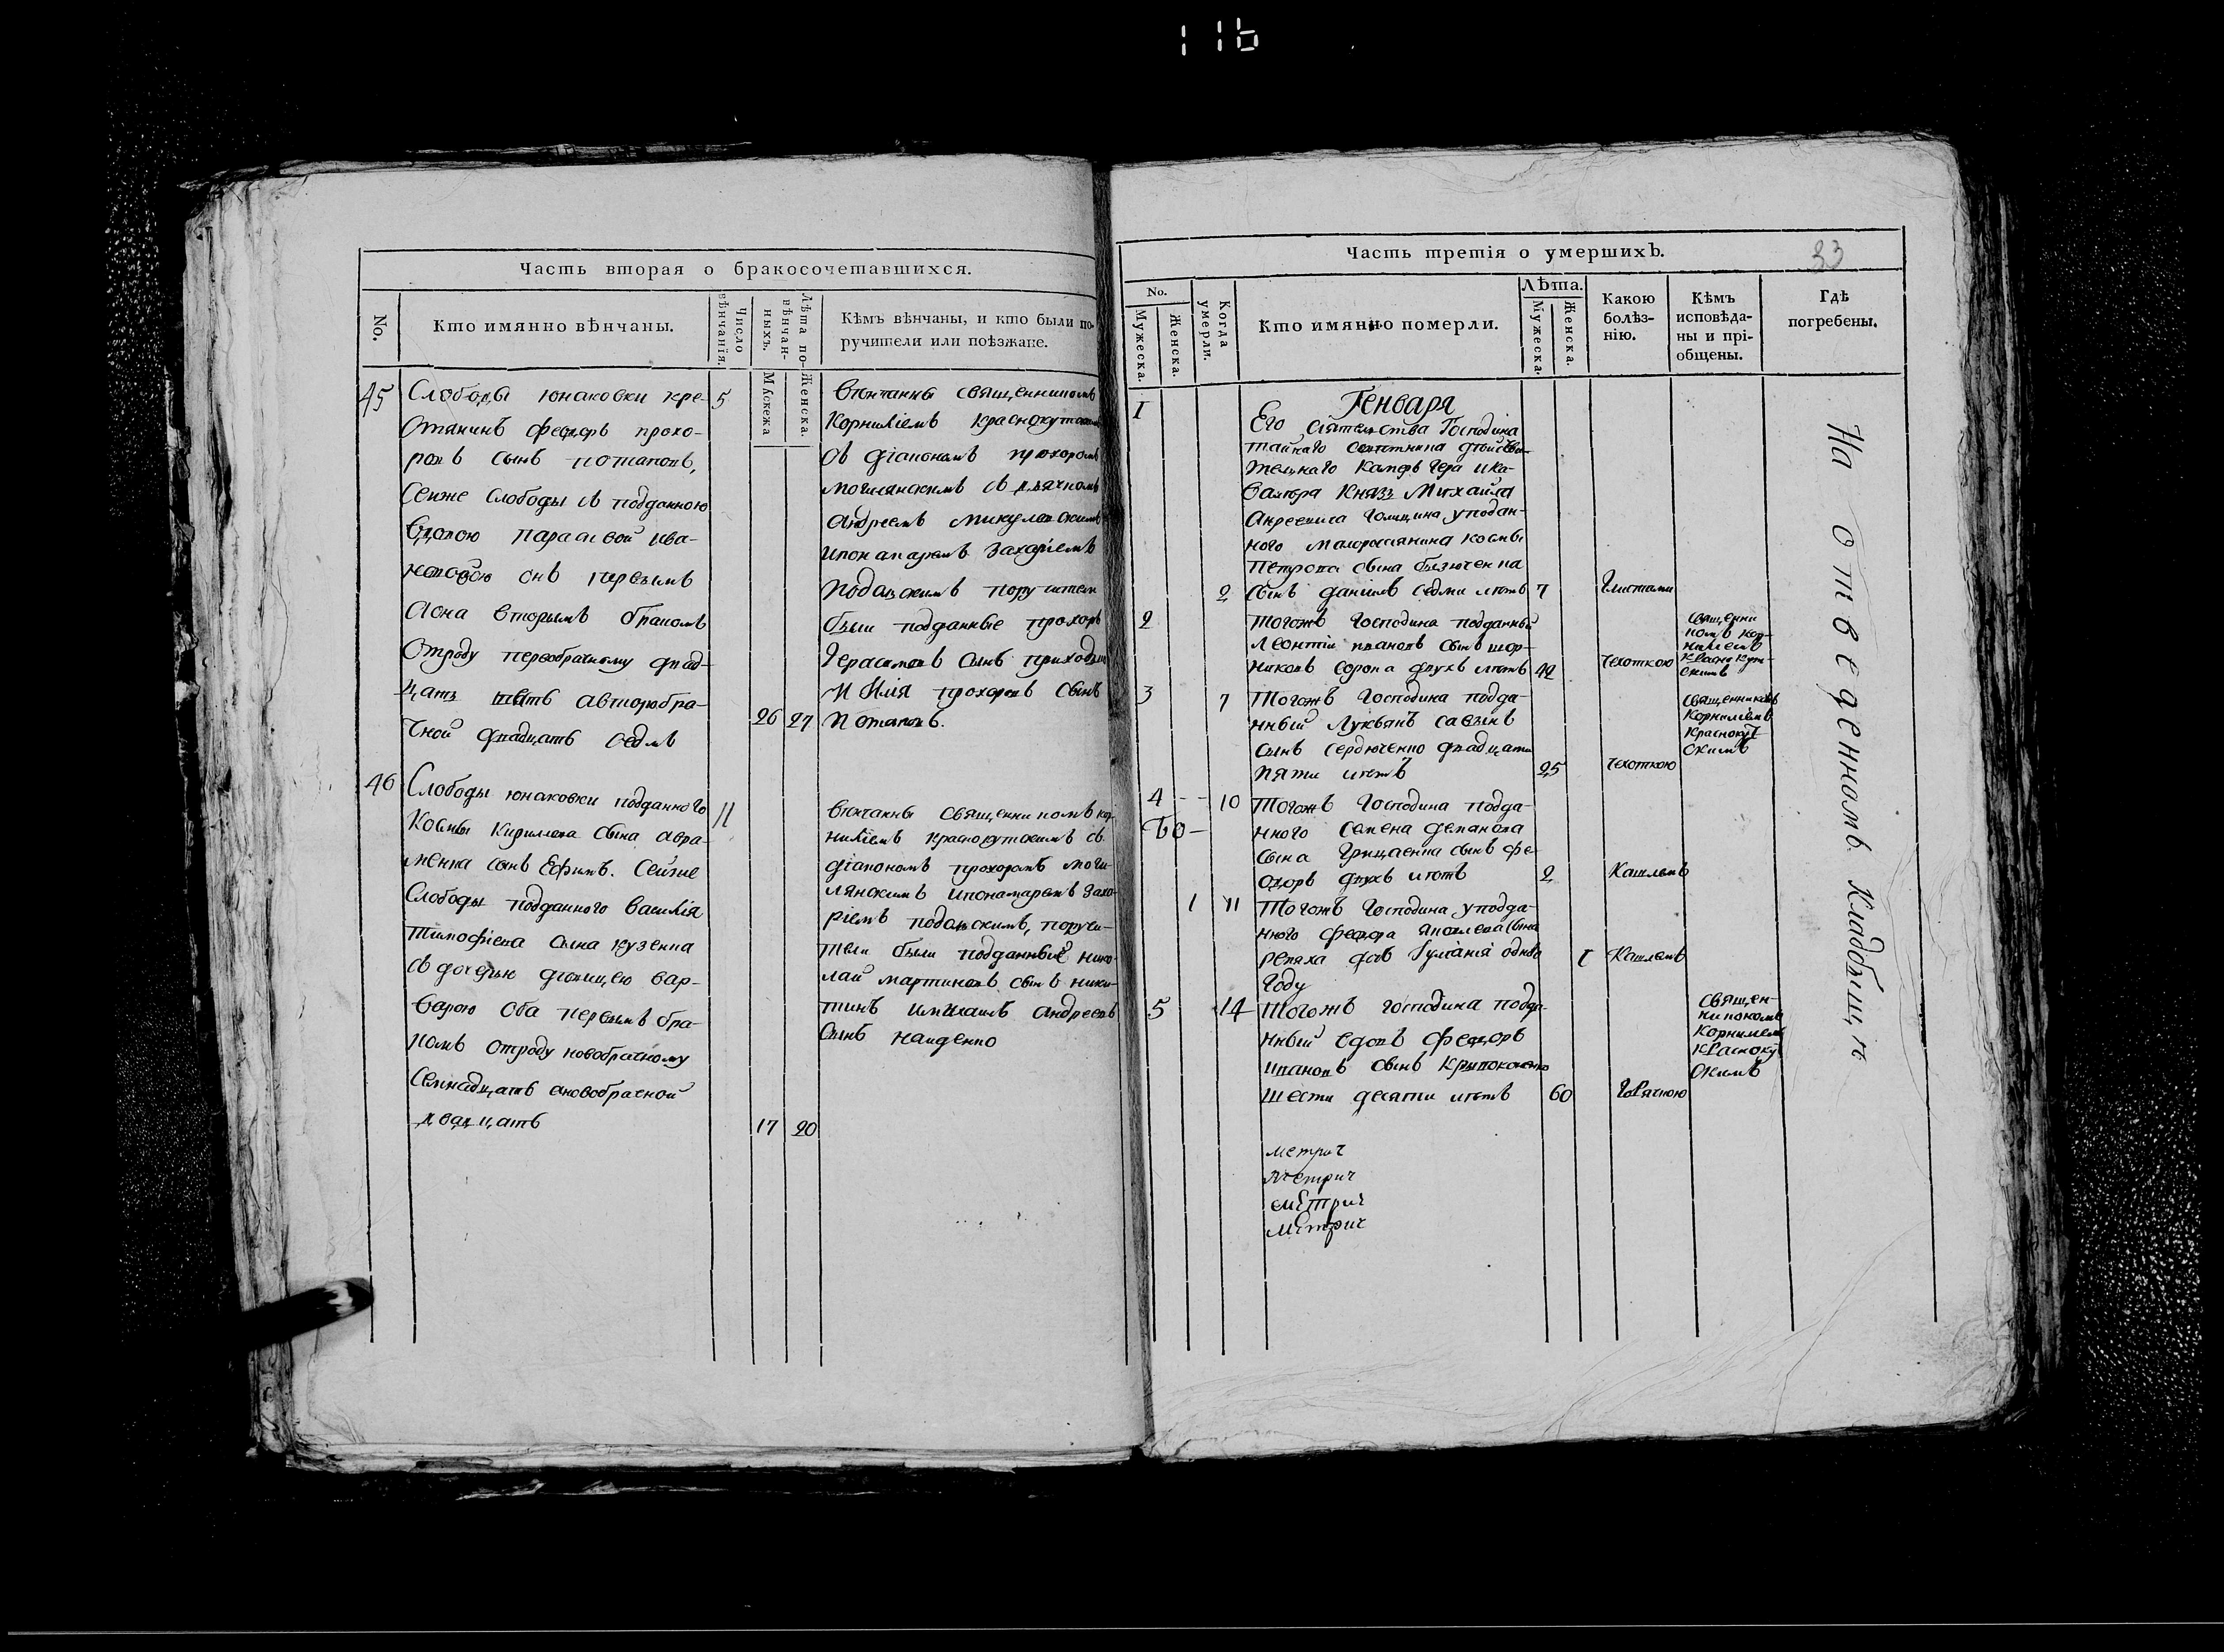 116
Часть вторая о бракосочетавшихся.
No.
Кто имянно вѣнчаны.
Число вѣнчанія.
Лѣта повѣнчанныхъ.
Мускежа
Женска.
Кѣмъ вѣнчаны, и кто были по-
ручители или поѣзжане.
45
Слободы юнаковки кре-
стянинъ федоръ прохо-
ровъ сынъ потаповъ,
Сеиже Слободы съ подданною
вдовою параскевой ива-
новою онъ первымъ
Аона вторымъ бракомъ
Отроду первобрачному двад-
цать шесть авторобра-
чной двадцать седмъ
5
26
27
Вѣнчанны священникомъ
Корниліемъ Краснокутскимъ
съ діакономъ прохоромъ
могилянскимъ съ дьячкомъ
Андреемъ
ипонамаремъ Захаріемъ
подольскимъ поручители
были подданные прохоръ
Герасимовъ сынъ
и Илія прохоровъ сынъ
Потаповъ.
46
Слободы юнаковки подданного
Космы Кирилова сына авра-
менка сынъ Ефимъ. Сейже
Слободы подданного василія
тимофіева сына кузенка
съ дочерью дѣвицею вар-
варою оба первымъ бра-
комъ отроду новобрачному
Семнадцать ановобрачной
двадцать
11
17
20
вѣнчанны священникомъ кор-
ниліемъ краснокутскимъ съ
діакономъ прохоромъ моги-
лянскимъ ипонамаремъ заха-
ріемъ подольскимъ, поручи-
тели были подданные нико-
лай мартиновъ сынъ ники-
тинъ имихаилъ Андреевъ
Сынъ наиденко
Часть третія о умершихъ.
23
No.
Мужеска.
Женска.
Когда умерли.
Кто имянно померли.
Лѣта.
Мужеска.
Женска.
Какою
болѣз-
нію.
Кѣмъ
исповѣда-
ны и прі-
общены.
Гдѣ
погребены.
Генваря
1
Его сіятельства Господина
тайнаго совѣтника дѣйстви-
тельнаго камергера ика-
валера Князя Михаила
Анреевича Голицина уподан-
ного малоросіянина космы
Петрова сына
2
сынъ даніилъ седми лѣтъ
7
Глистами
2
Тогожъ Господина подданный
Леонтіи ивановъ сынъ шор-
никовъ сорока двухъ лѣтъ
42
чехоткою
священни
комъ кор-
ниліемъ
Краснокут-
скимъ
3
7
Тогожъ Господина подда-
нный Лукьянъ савинъ
сынъ сердюченко двадцати
пяти лѣтъ
25
чехоткою
священникомъ
Корниліемъ
Краснокут
скимъ
4
10
Тогожъ Господина подда-
нного семена демянова
сына Грицаенка сынъ фе-
одоръ двухъ лѣтъ
2
Кашлемъ
1
11
Тогожъ Господина уподда-
нного федора яковлева сына
репяха дочь Іуліанія однова
Году
1
Кашлемъ
5
14
Тогожъ господина подда-
нный вдовъ федоръ
ивановъ сынъ
шести десяти лѣтъ
60
Горячкою
священ-
никокомъ
Корниліемъ
Красноку
скимъ
метрич
метрич
метрич
метрич
На отведенномъ Кладбищѣ